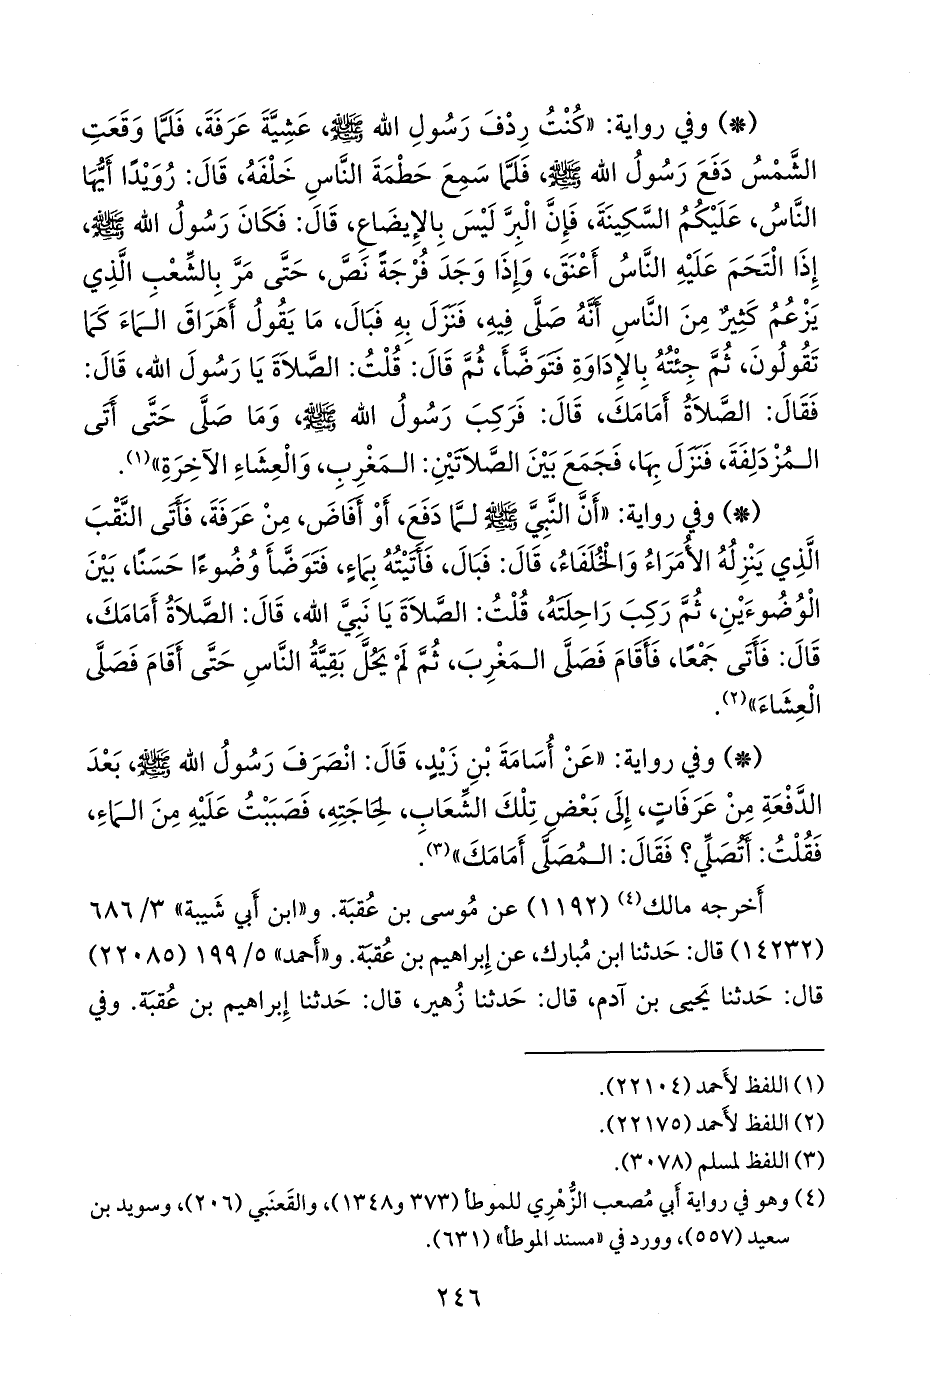 (*) وفي رواية: «كُنْتُ رِدْفَ رَسُولِ الله ﷺ، عَشِيَّةَ عَرَفَةَ، فَلَمَّا وَقَعَتِ
الشَّمْسُ دَفَعَ رَسُولُ الله ﷺ، فَلَمَّا سَمِعَ حَطْمَةَ النَّاسِ خَلْفَهُ، قَالَ: رُوَيْدًا أَيُّهَا
النَّاسُ، عَلَيْكُمُ السَّكِينَةَ، فَإِنَّ الْبِرَّ لَيْسَ بِالإِيضَاعِ، قَالَ: فَكَانَ رَسُولُ الله ﷺ،
إِذَا الْتَحَمَ عَلَيْهِ النَّاسُ أَعْنَقَ، وَإِذَا وَجَدَ فُرْجَةً نَصَّ، حَتَّى مَرَّ بِالشِّعْبِ الَّذِي
يَزْعُمُ كَثِيرٌ مِنَ النَّاسِ أَنَّهُ صَلَّى فِيهِ، فَنَزَلَ بِهِ فَبَالَ، مَا يَقُولُ أَهَرَاقَ الـمَاءَ كَمَا
تَقُولُونَ، ثُمَّ جِئْتُهُ بِالإِدَاوَةِ فَتَوَضَّأَ، ثُمَّ قَالَ: قُلْتُ: الصَّلاَةَ يَا رَسُولَ الله، قَالَ:
فَقَالَ: الصَّلاَةُ أَمَامَكَ، قَالَ: فَرَكِبَ رَسُولُ الله ﷺ، وَمَا صَلَّى حَتَّى أَتَى
الـمُزْدَلِفَةَ، فَنَزَلَ بِهَا، فَجَمَعَ بَيْنَ الصَّلاَتَيْنِ: الـمَغْرِبِ، وَالْعِشَاءِ الآخِرَةِ»(١).
(*) وفي رواية: «أَنَّ النَّبِيَّ ﷺ لـمَّا دَفَعَ، أَوْ أَفَاضَ، مِنْ عَرَفَةَ، فَأَتَى النَّقْبَ
الَّذِي يَنْزِلُهُ الأُمَرَاءُ وَالْخُلَفَاءُ، قَالَ: فَبَالَ، فَأَتَيْتُهُ بِمَاءٍ، فَتَوَضَّأَ وُضُوءًا حَسَنًا، بَيْنَ
الْوُضُوءَيْنِ، ثُمَّ رَكِبَ رَاحِلَتَهُ، قُلْتُ: الصَّلاَةَ يَا نَبِيَّ الله، قَالَ: الصَّلاَةُ أَمَامَكَ،
قَالَ: فَأَتَى جَمْعًا، فَأَقَامَ فَصَلَّى الـمَغْرِبَ، ثُمَّ لَمْ يَحُلَّ بَقِيَّةُ النَّاسِ حَتَّى أَقَامَ فَصَلَّى
الْعِشَاءَ»(٢).
(*) وفي رواية: «عَنْ أُسَامَةَ بْنِ زَيْدٍ، قَالَ: انْصَرَفَ رَسُولُ الله ﷺ، بَعْدَ
الدَّفْعَةِ مِنْ عَرَفَاتٍ، إِلَى بَعْضِ تِلْكَ الشِّعَابِ، لِحَاجَتِهِ، فَصَبَبْتُ عَلَيْهِ مِنَ الـمَاءِ،
فَقُلْتُ: أَتُصَلِّي؟ فَقَالَ: الـمُصَلَّى أَمَامَكَ»(٣).
أَخرجه مالك(٤) (١١٩٢) عن مُوسى بن عُقبَة. و«ابن أَبي شَيبة» ٣/ ٦٨٦
(١٤٢٣٢) قال: حَدثنا ابن مُبارك، عن إِبراهيم بن عُقبَة. و«أَحمد» ٥/ ١٩٩ (٢٢٠٨٥)
قال: حَدثنا يَحيى بن آدم، قال: حَدثنا زُهير، قال: حَدثنا إِبراهيم بن عُقبَة. وفي
(١) اللفظ لأَحمد (٢٢١٠٤).
(٢) اللفظ لأَحمد (٢٢١٧٥).
(٣) اللفظ لمسلم (٣٠٧٨).
(٤) وهو في رواية أَبي مُصعب الزُّهْري للموطأ (٣٧٣ و١٣٤٨)، والقَعنَبي (٢٠٦)، وسويد بن
سعيد (٥٥٧)، وورد في «مسند الموطأ» (٦٣١).
٢٤٦